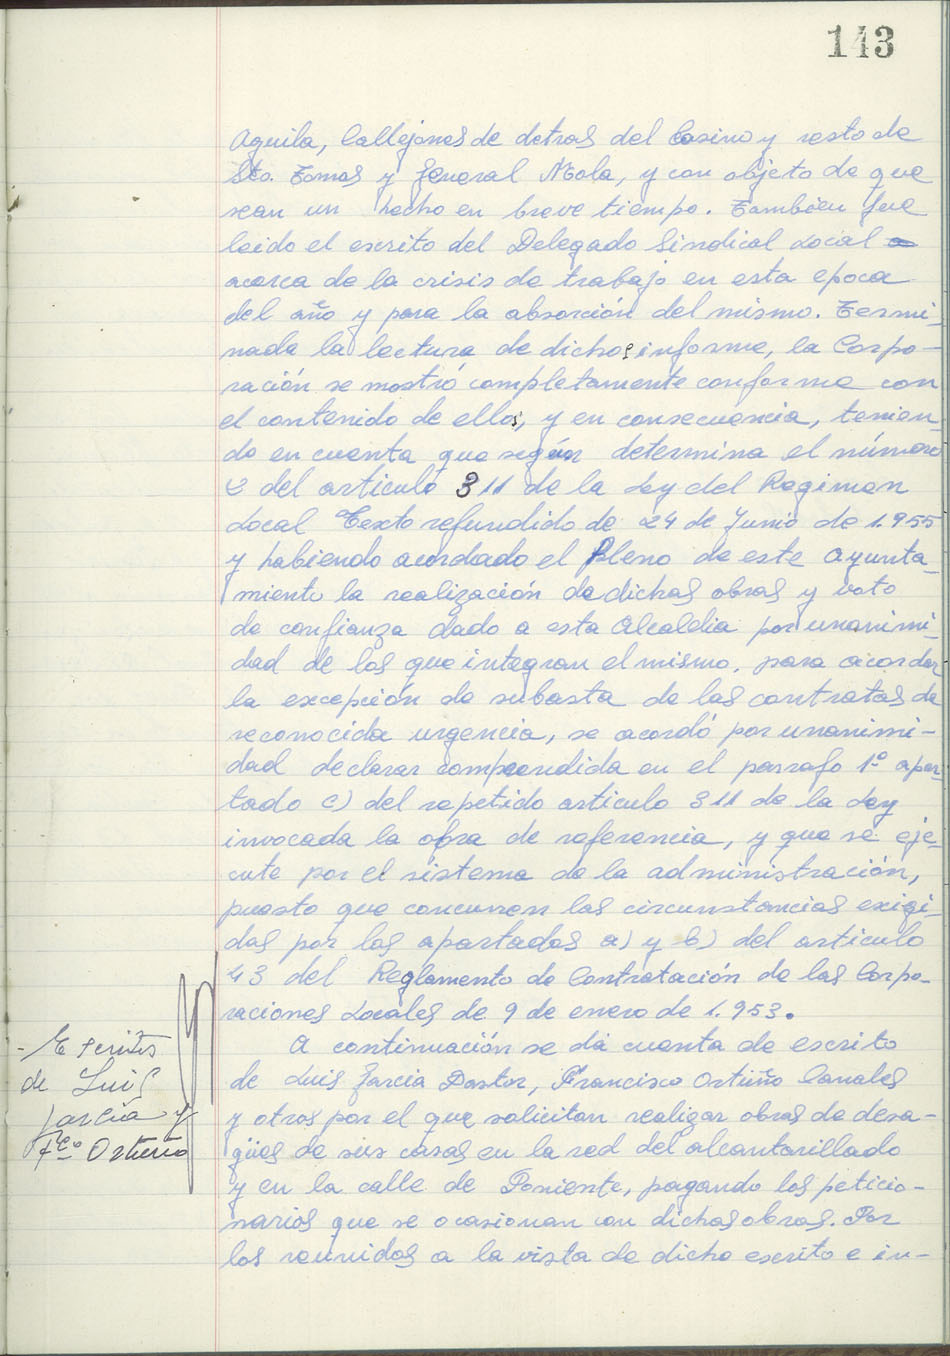 143
Aguila, Callejones de detras del Casino y resto de
Sto. Tomas y General Mola, y con objeto de que
sean un hecho en breve tiempo. Tambien fue
leido el escrito del Delegado Sindical Local
acerca de la crisis de trabajo en esta epoca
del año y para la absorción del mismo. Termi-
nada la lectura de dichos informe, la Corpo-
ración se mostró completamente conforme con
el contenido de ellos, y en consecuencia, tenien-
do en cuenta que según determina el número
2 del articulo 311 de la Ley del Regimen
Local Texto refundido de 24 de Junio de 1.955
y habiendo acordado el Pleno de este Ayunta-
miento la realización de dichas obras y voto
de confianza dado a esta Alcaldia por unanimi-
dad de los que integran el mismo, para acordar
la excepción de subasta de las contratas de
reconocida urgencia, se acordó por unanimi-
dad declarar comprendida en el parrafo 1º apar-
tado c) del repetido articulo 311 de la Ley
invocada la obra de referencia, y que se eje-
cute por el sistema de la administración,
puesto que concurren las circunstancias exigi-
das por los apartados a) y b) del articulo
43 del Reglamento de Contratación de las Corpo-
raciones Locales de 9 de enero de 1.953.
- Escritos
de Luis
Garcia y
Fco Ortuño
A continuación se da cuenta de escrito
de Luis Garcia Pastor, Francisco Ortuño Canales
y otros por el que solicitan realizar obras de desa-
gües de sus casas en la red del alcantarillado
y en la calle de Poniente, pagando los peticio-
narios que se ocasionan con dichas obras. Por
los reunidos a la vista de dicho escrito e in-